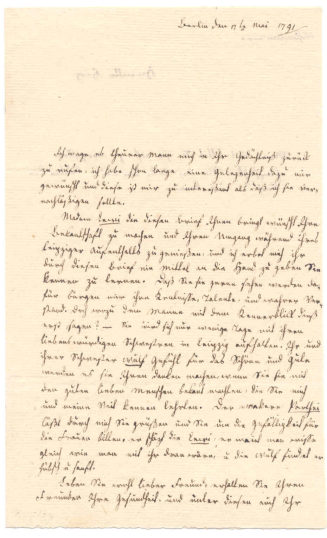 Berlin den 17 t Mai 1791
Ich wage es theurer Mann mich in Ihr Gedächtniß zurück
zu rufen; ich habe schon lange eine Gelegenheit dazu mir
gewünscht und diese ist mir zu interessant als daß ich sie ver-
nachläßigen sollte.
Madam Levi die diesen Brief Ihnen bringt wünscht Ihre
Bekantschaft zu machen und Ihren Umgang während ihres
Leipziger Aufenthalts zu genießen; und ich erbot mich ihr
durch diesen Brief ein Mittel an die Hand zu geben Sie
kennen zu lernen. Daß Sie sie gerne sehen werden da-
für bürgen mir ihre Kentnisse, Talente, und wahrer Ver-
stand. Doch wozu dem Manne mit dem Kennerblick dieß
erst sagen! — Sie wird sich nur wenige Tage mit ihren
liebenswürdigen Schwestern in Leipzig aufhalten. Ihr und
ihrer Schwester Wulff Gefühl für das Schöne und Gute
werden es sie Ihnen danken machen, wenn Sie sie mit
den guten lieben Menschen bekant machten, die Sie mich
und meine Veit kennen lehrten. Der
läßt durch mich Sie grüßen und Sie um die Gefälligkeit für
die Frauen bitten, er schätzt die Levi, er meint man müsse
gleich wie man mit ihr und die Wulff findet er
hübsch und sanft.
Leben Sie recht lieber Freund; erhalten Sie Ihren
Freunden Ihre Gesundheit, und unter diesen auch Ihr